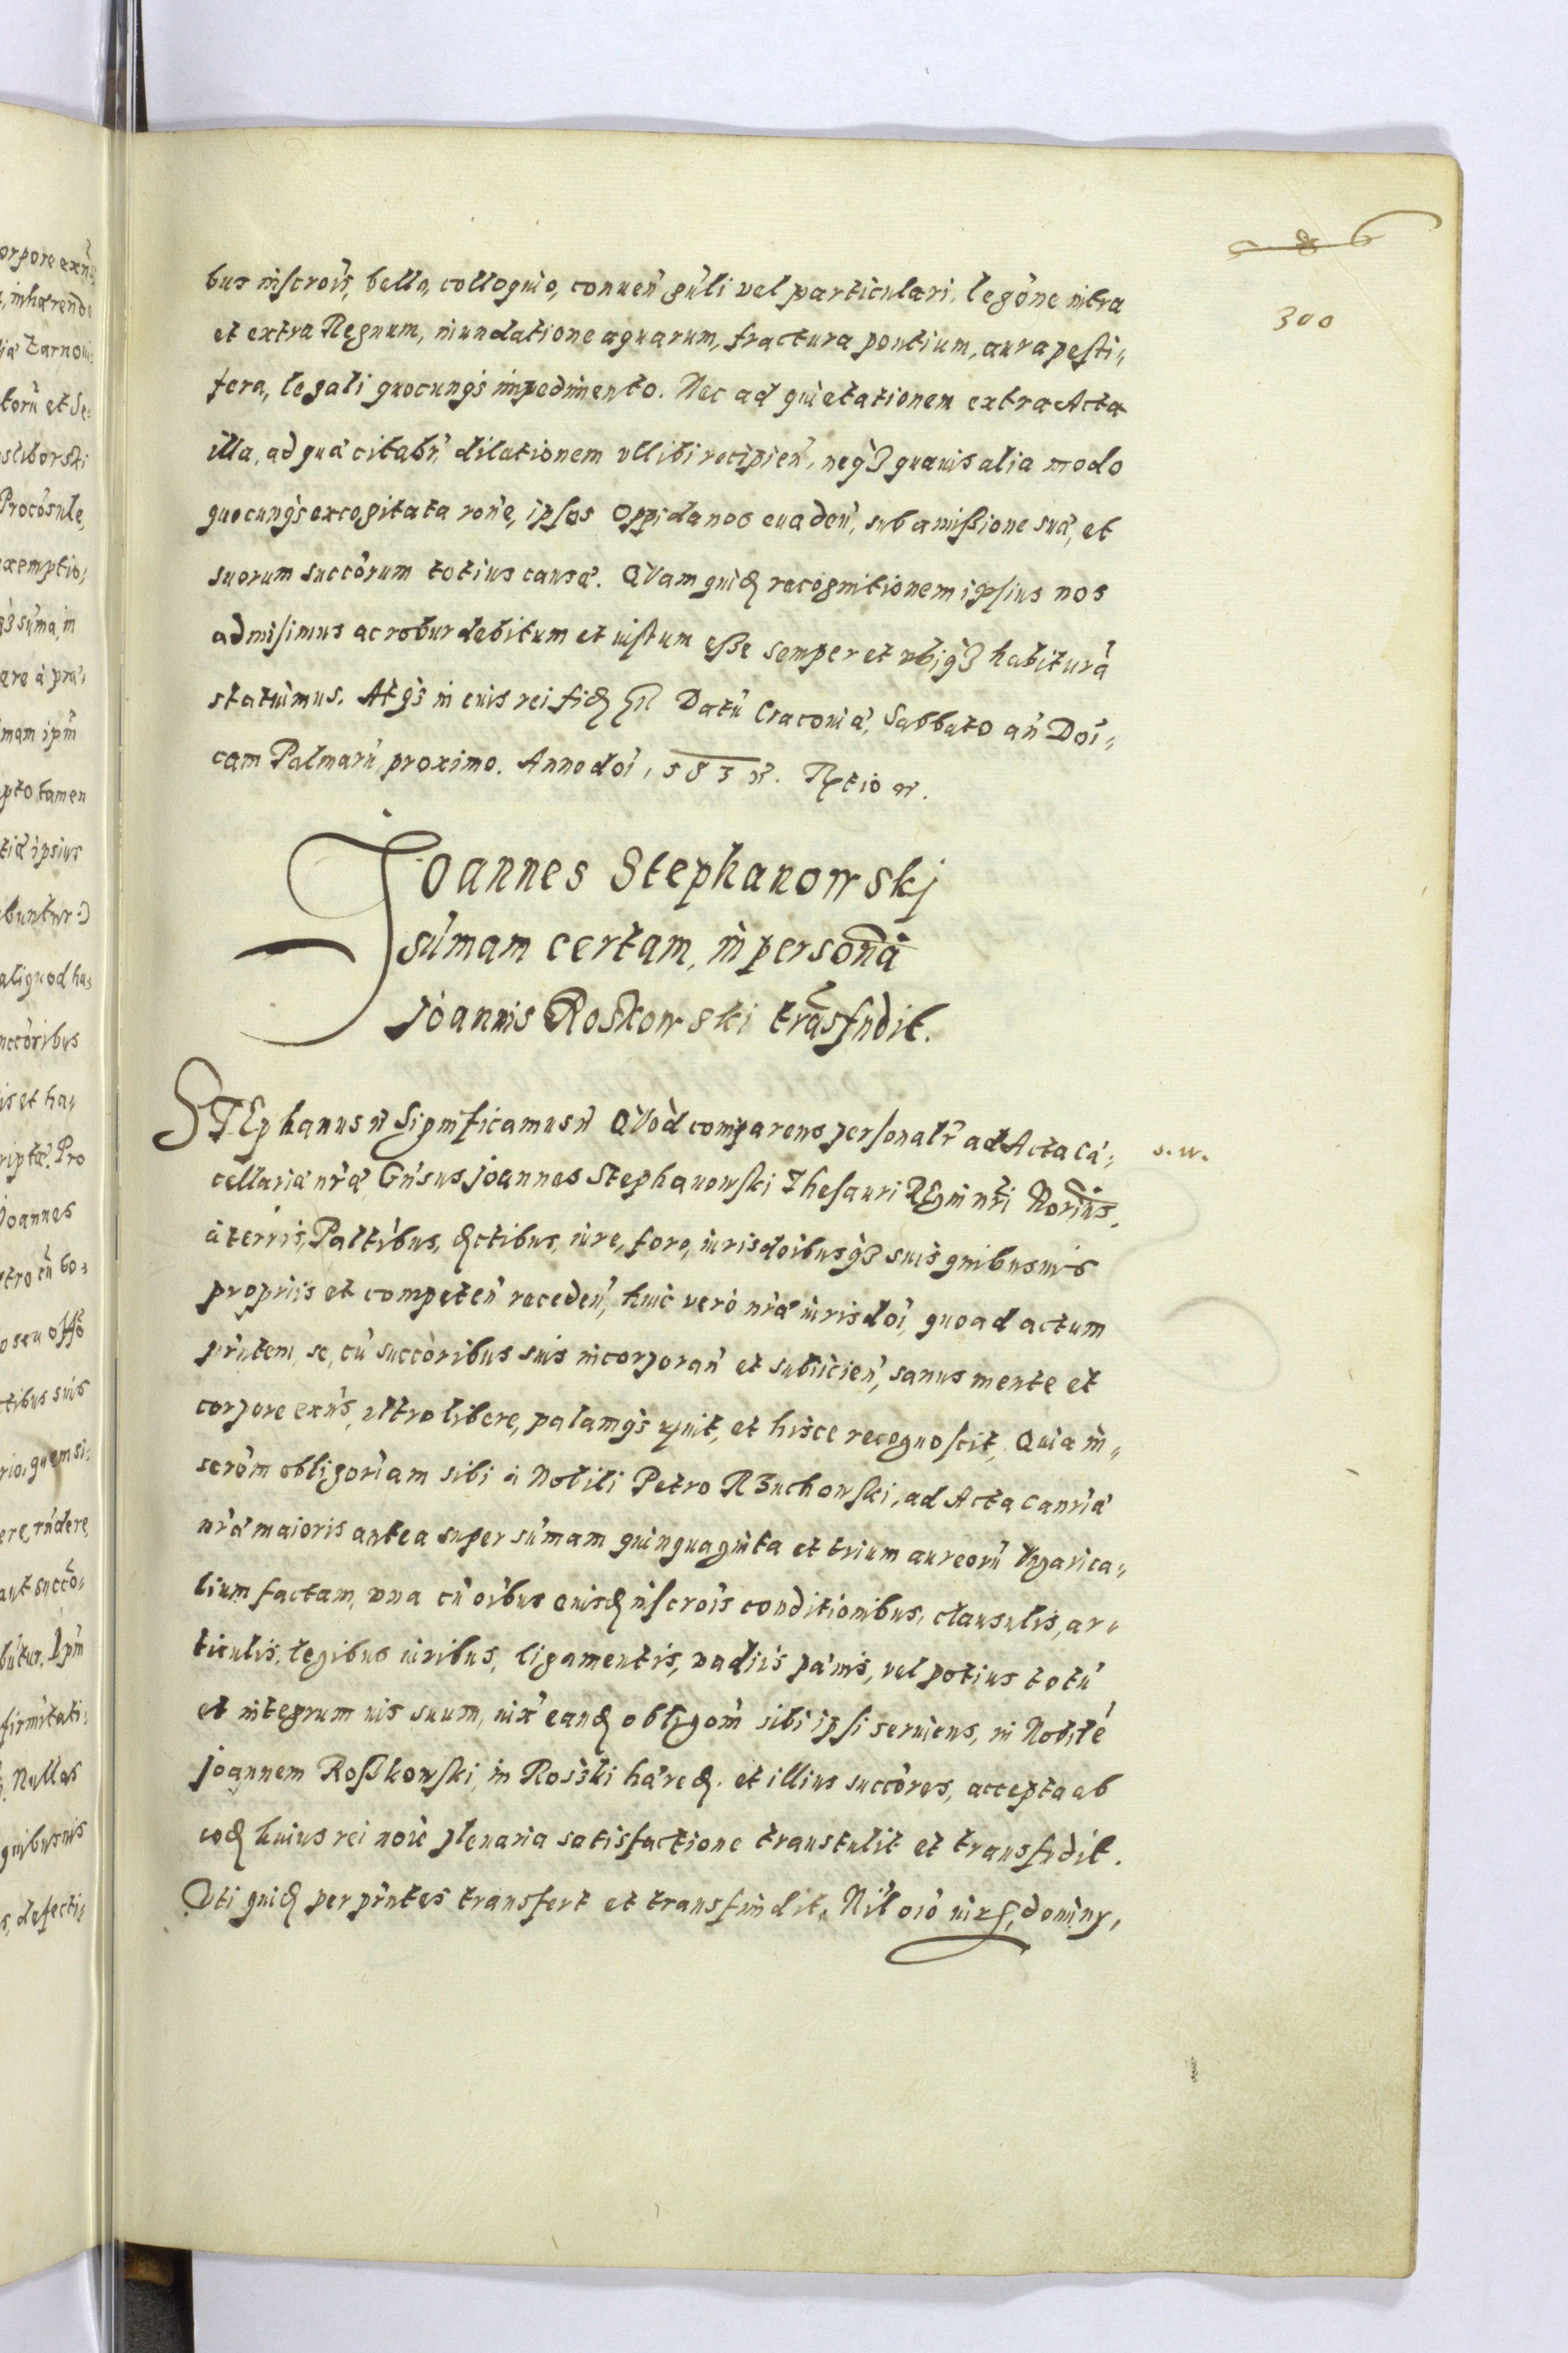 300
bus inscrois, bello, colloquio, conuen͂ gn͂li vel particulari, legõne intra
et extra Regnum, inundatione aquarum, fractura pontium, aura pesti„
fera, legali quocunqs impedimento. Nec ad quietationem extra Acta
illa, ad quã citabr̃, dilationem vllibi recipien͂, neqȝ quauis alia modo
quocunqs excogitata rone, ipsos Oppidanos euaden͂, sub amißione suã, et
suorum succorum totius causæ. QVam quidͅ recognitionem ipsius nos
admisimus ac robur debitum et iustum eße semper et vbiqȝ habiturã
statuimus. Atqs in cuis rei fidͅ Datũ Cracouiæ, Sabbato an͂ Doi„
cam Palmarũ proximo. Anno doi, 583
Joannes Stephanowskj
sũmam certam, in personã
Joannis Roskowski trãsfudit.
STEphanus Significamus QVod comparens personalr̃ ad Acta Cã„
s.w.
cellariæ nr̃æ, Gn͂sus Joannes Stephanowski Thesauri Regni nr̃i Norius,
à terris, Paltibus, dͅctibus, iure, foro, iurisdoibusqȝ suis quibusuis
proprijs et competen͂ receden͂, huic verò nr̃æ iurisdoi, quoad actum
pr̃item, se, cũ succoribus suis incorporan͂ et subijcien͂, sanus mente et
corpore exn͂s, vltro libere, palamqs et hisce recognoscit, Quia in„
scrom obligoriam sibi à Nobili Petro Rzuchowski, ad Acta Canriæ
nr̃æ maioris antea super sũmam quinquaginta et trium aureorũ Vngarica„
lium factam, vna cũ oibus cuisdͅ inscrois conditionibus, clausulis, ar„
ticulis, legibus iuribus, ligamentis, vadijs pænis, vel potius totũ
et integrum ius suum, iux͂ eandͅ obligom sibi ipsi seruiens, in Nobile
Joannem Roßkowski, in Roszki hæredͅ. et illius succores, accepta ab
eodͅ huius rei noie plenaria satisfactione transtulit et transfudit.
Vti quidͅ per pr̃ntes transfert et transfundit. Nil oio iuris, dominy,